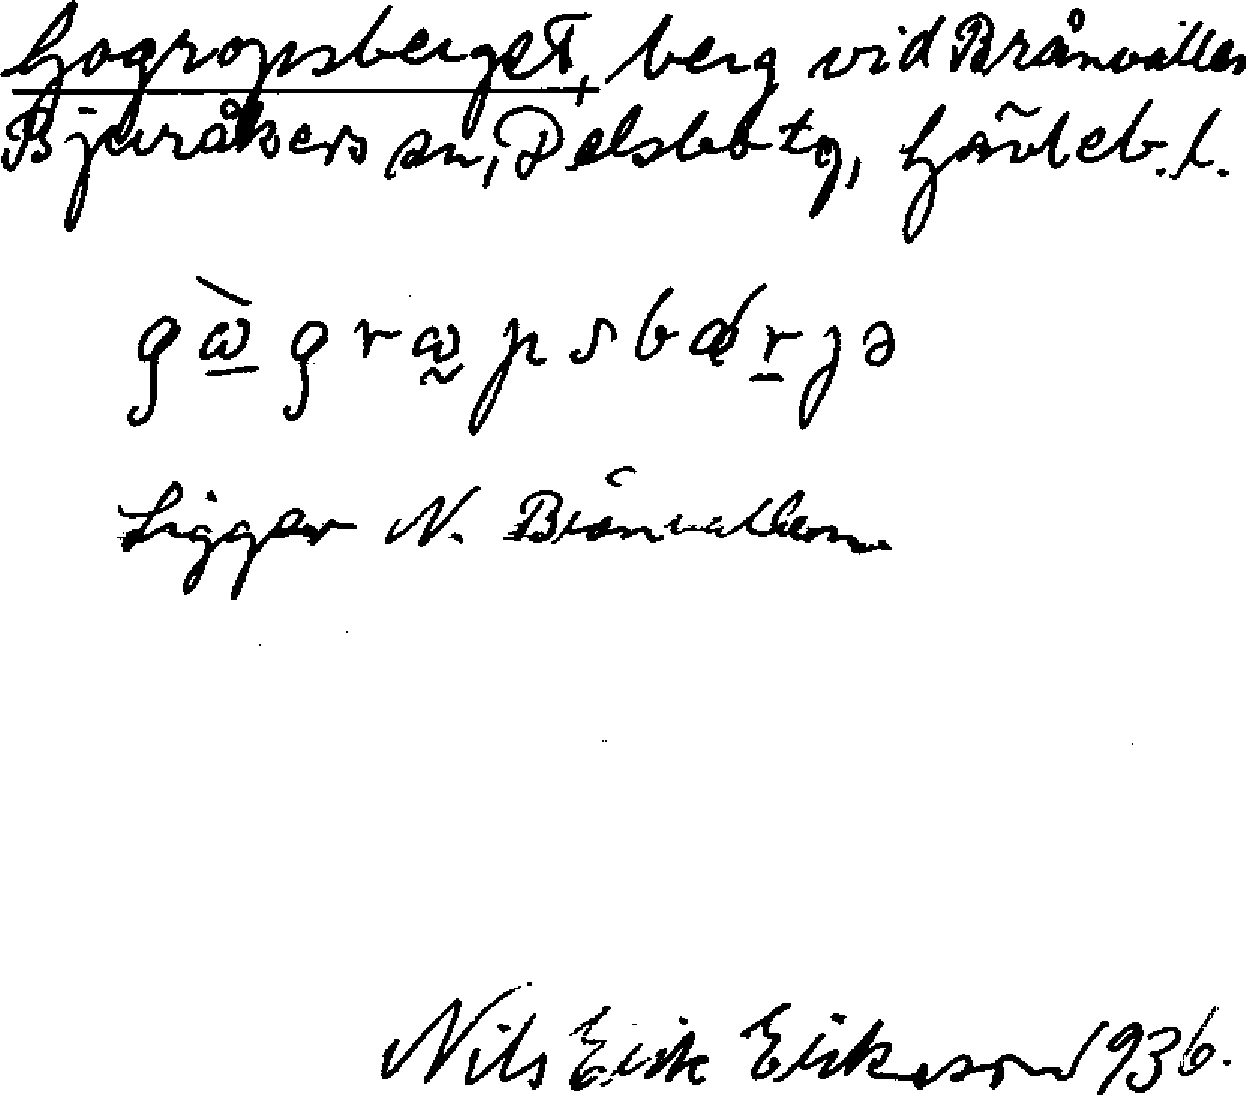 Gogropsberget, berg vid Brånvallen
Bjuråkers sn, Delsbo tg, Gävleb. l.
Ligger N. Brånvallen.
Nils Erik Erikson 1936.